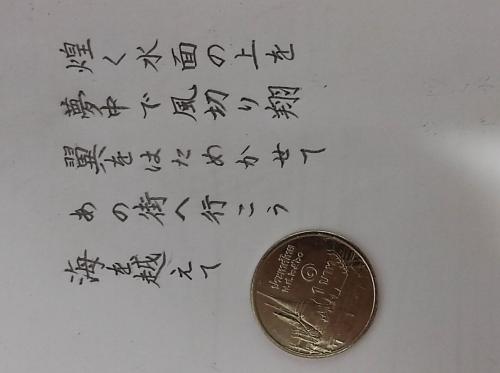 煌く水面の上を
夢中で風切り翔
翼をはためかせて
あの街へ行こう
海を越えて
ประเทศไทย
พ.ศ.
๑ บาท